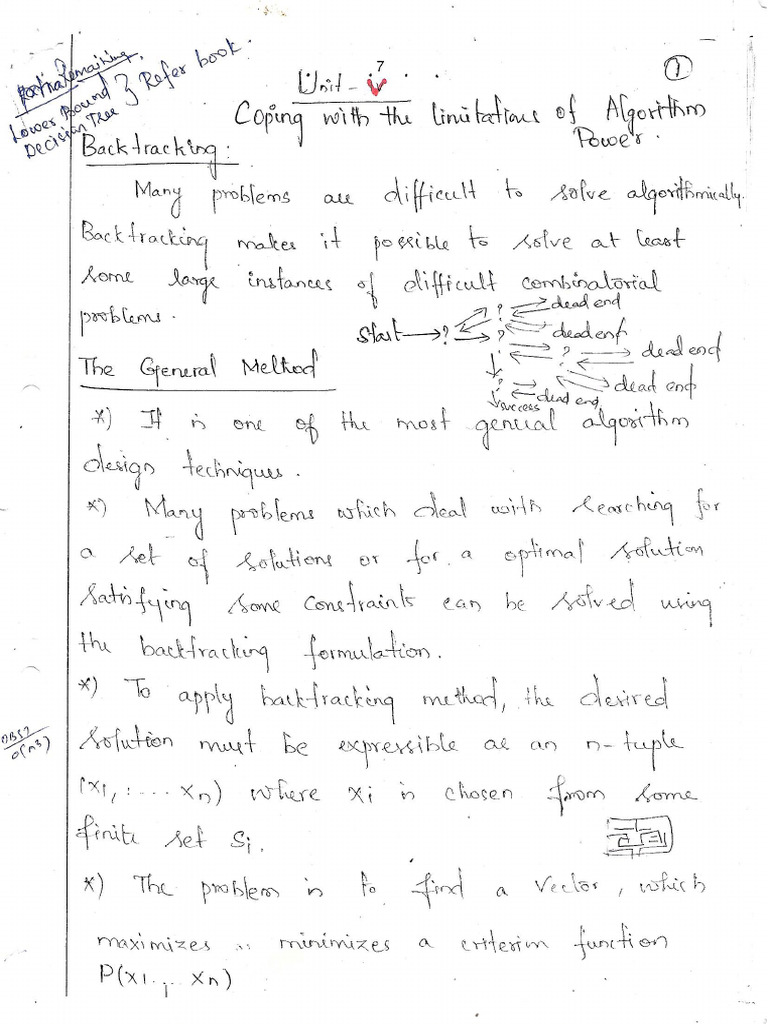 Remaining.
Lower Bound } Refer book.
Decision Tree
7
Unit - V
1
Coping with the limitations of Algorithm
Power.
Backtracking:
Many problems are difficult to solve algorithmically.
Backtracking makes it possible to solve at least
some large instances of difficult combinatorial
problems.
Start → ? → ?
? dead end
dead end
? dead end
dead end
? dead end
success
The General Method
*) It is one of the most general algorithm
design techniques.
*) Many problems which deal with searching for
a set of solutions or for a optimal solution
satisfying some constraints can be solved using
the backtracking formulation.
*) To apply backtracking method, the desired
OBST
O(n3)
solution must be expressible as an n-tuple
(x1, .... xn) where xi is chosen from some
finite set Si.
*) The problem is to find a vector, which
maximizes minimizes a criterim function
P(x1..., xn)